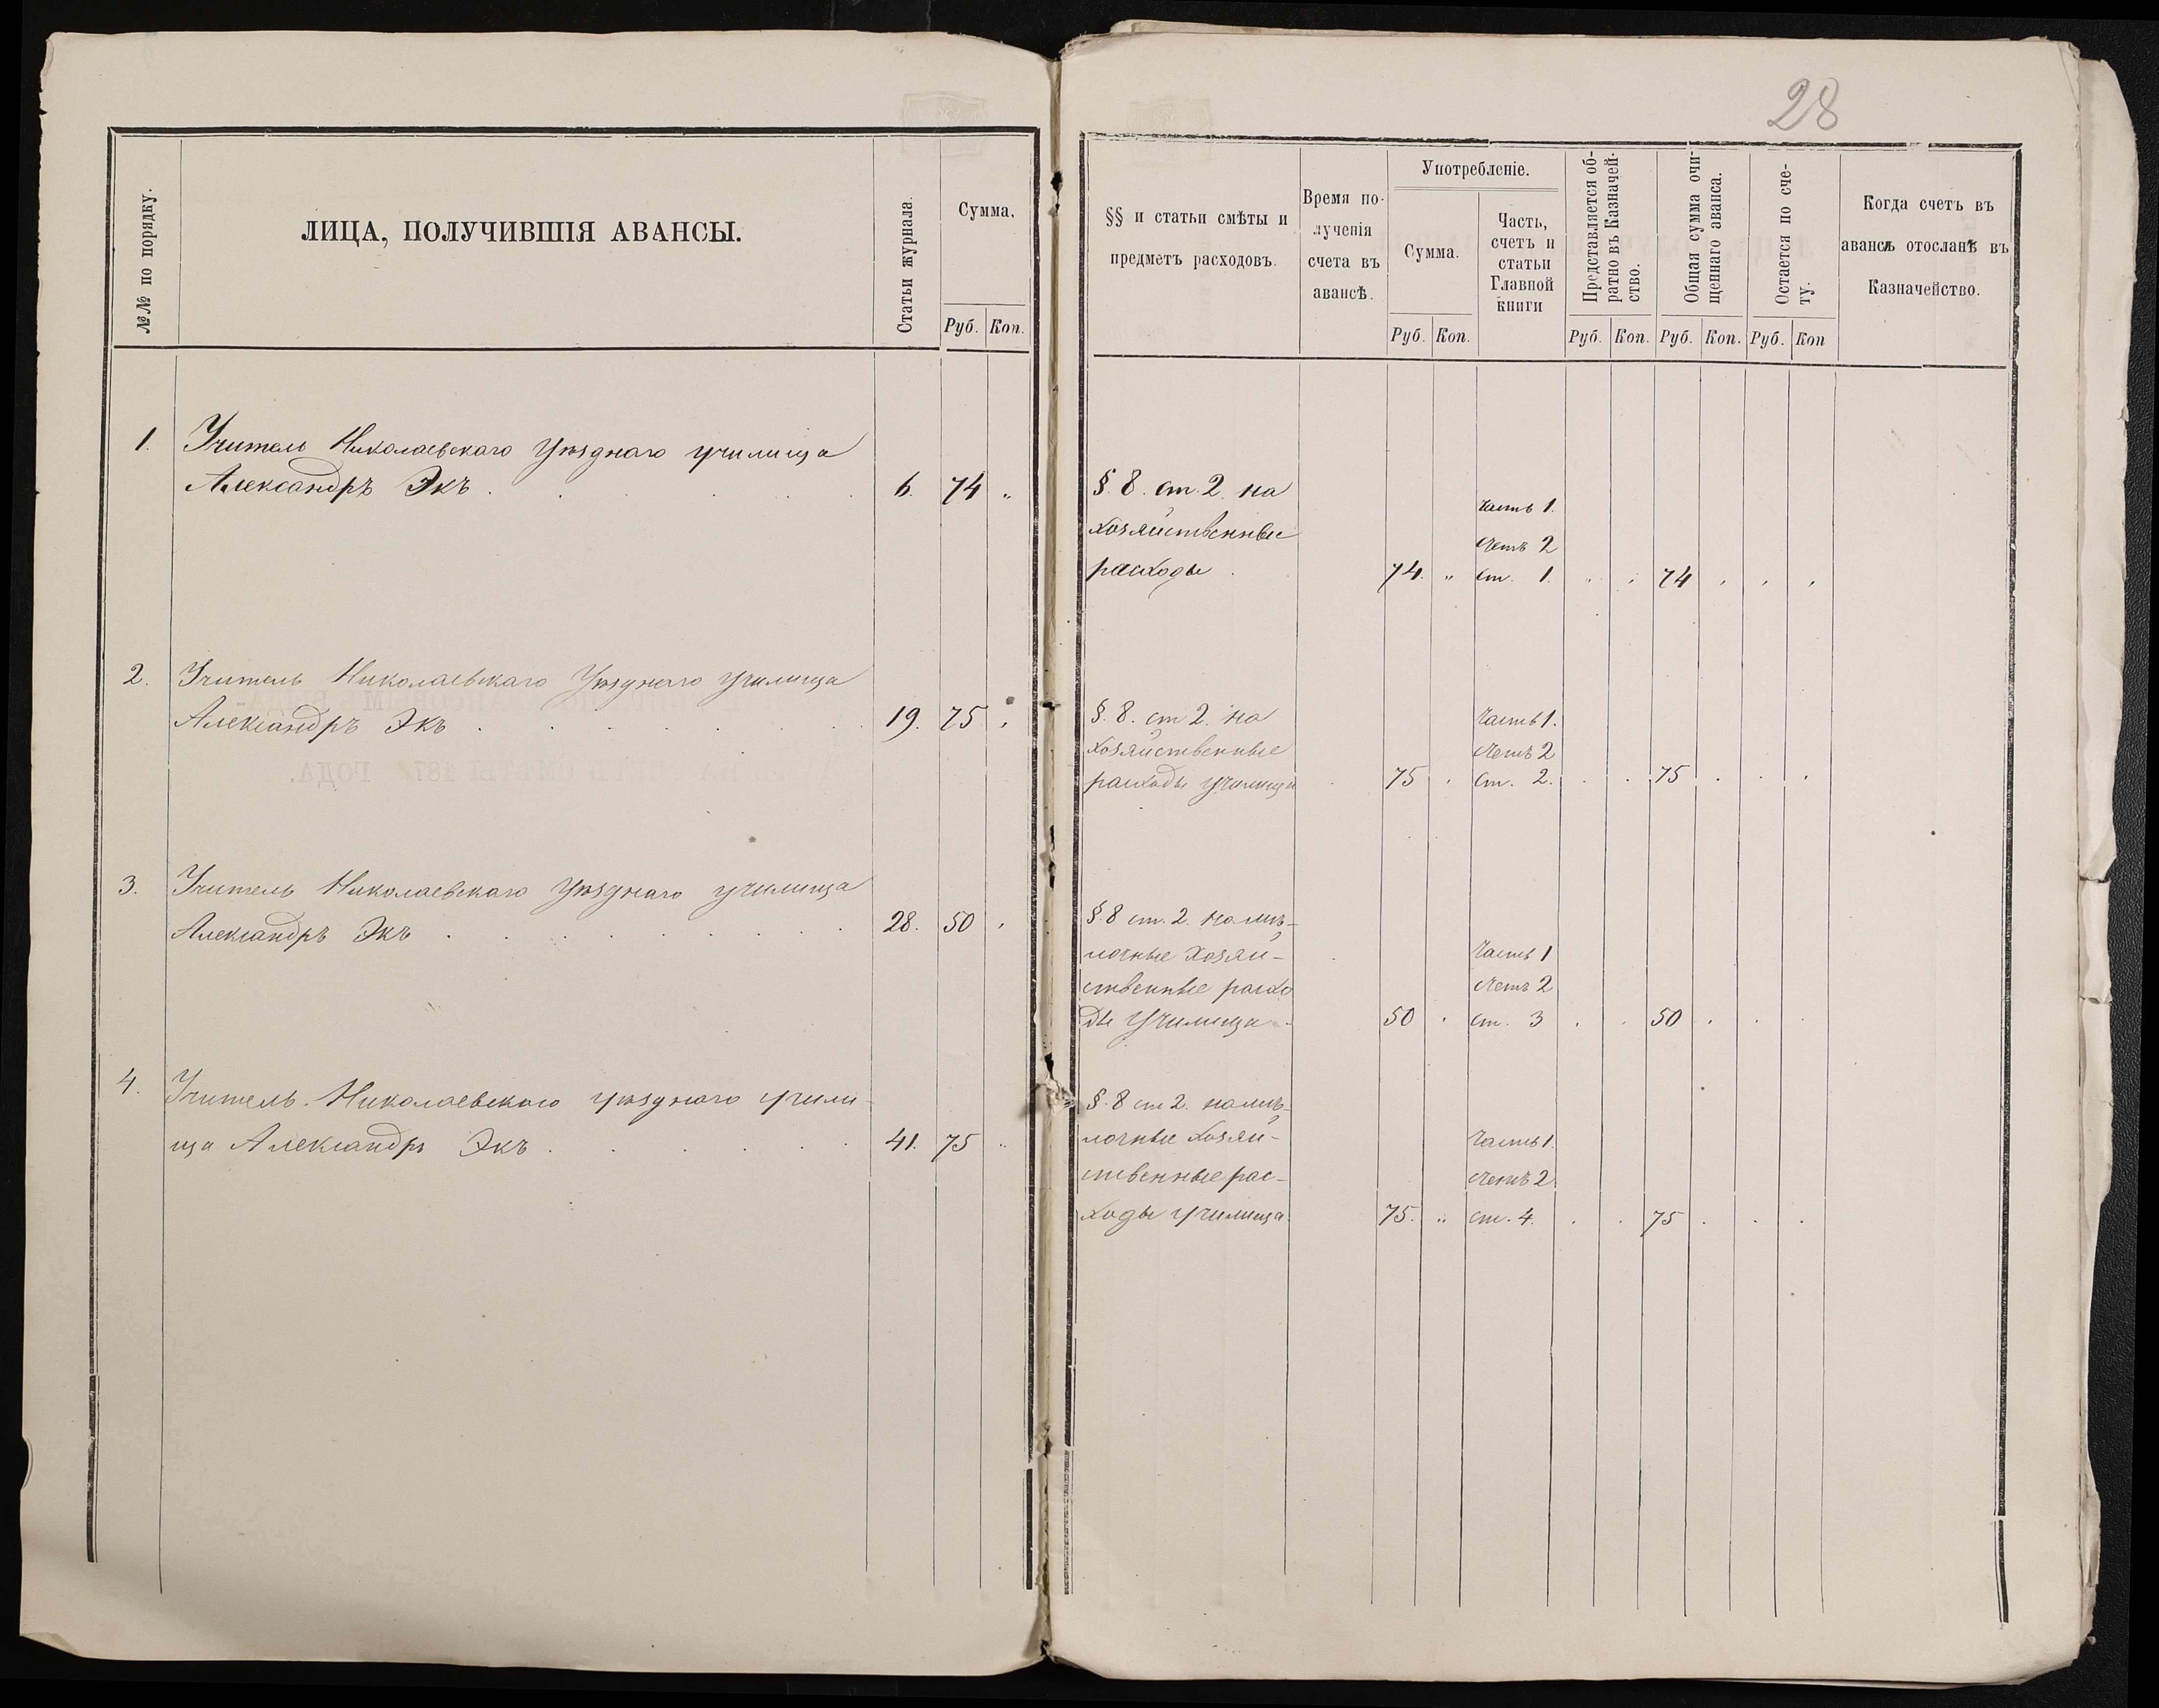 28
№№ по порядку.
ЛИЦА, ПОЛУЧИВШІЯ АВАНСЫ.
Статьи журнала.
Сумма.
Руб. Коп.
1. Учитель Николаевскаго Уѣзднаго училища
Александръ Экъ . . . . . . 6. 74 „
2. Учитель Николаевскаго Уѣзднаго Училища
Александръ Экъ . . . . . . 19. 75 „
3. Учитель Николаевскаго Уѣзднаго училища
Александръ Экъ . . . . . . . 28. 50 „
4. Учитель Николаевскаго уѣзднаго учили-
ща Александръ Экъ . . . . . . 41. 75 „
§§ и статьи смѣты и
предметъ расходовъ.
Время по-
лученія
счета въ
авансѣ.
Употребленіе.
Сумма.
Руб. Коп.
Часть,
счетъ и
статьи
Главной
книги
Представляется об-
ратно въ Казначей-
ство.
Руб. Коп.
Общая сумма очи-
щеннаго аванса.
Руб. Коп.
Остается по сче-
ту.
Руб. Коп
Когда счетъ въ
авансѣ отосланъ въ
Казначейство.
§. 8. ст. 2. на
хозяйственные
расходы .
Часть 1.
Счетъ 2
74. „ ст. 1. „ „ 74 „ „ „
§. 8. ст 2. на
хозяйственные
расходы училища
Часть 1.
Счетъ 2
75 . ст. 2. . . 75 . . .
§. 8 ст. 2. на мѣ-
лочные хозяй-
ственные расхо
ды Училища .
Часть 1
Счетъ 2
50 . ст. 3 . . 50 . . .
§. 8 ст 2. на мѣ-
лочные хозяй-
ственные рас-
ходы училища.
Часть 1.
Счетъ 2
75. „ ст. 4. . . 75 . . .